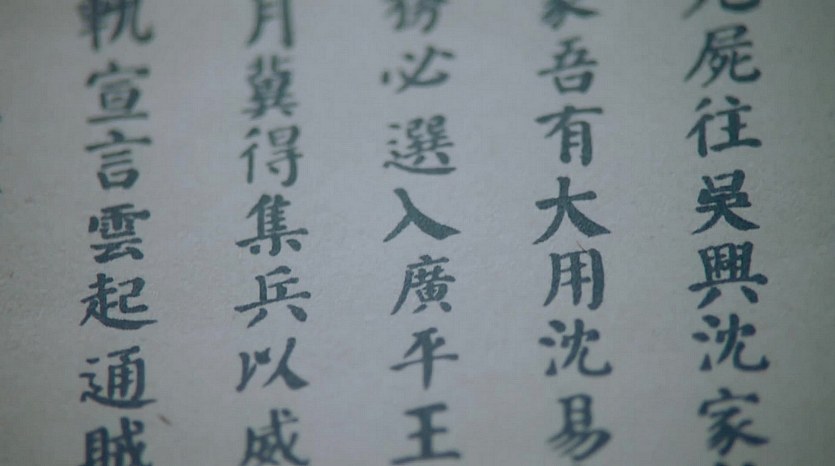 屍往吳興沈家
家吾有大用沈易
務必選入廣平王
月冀得集兵以威
執宣言雲起通賊